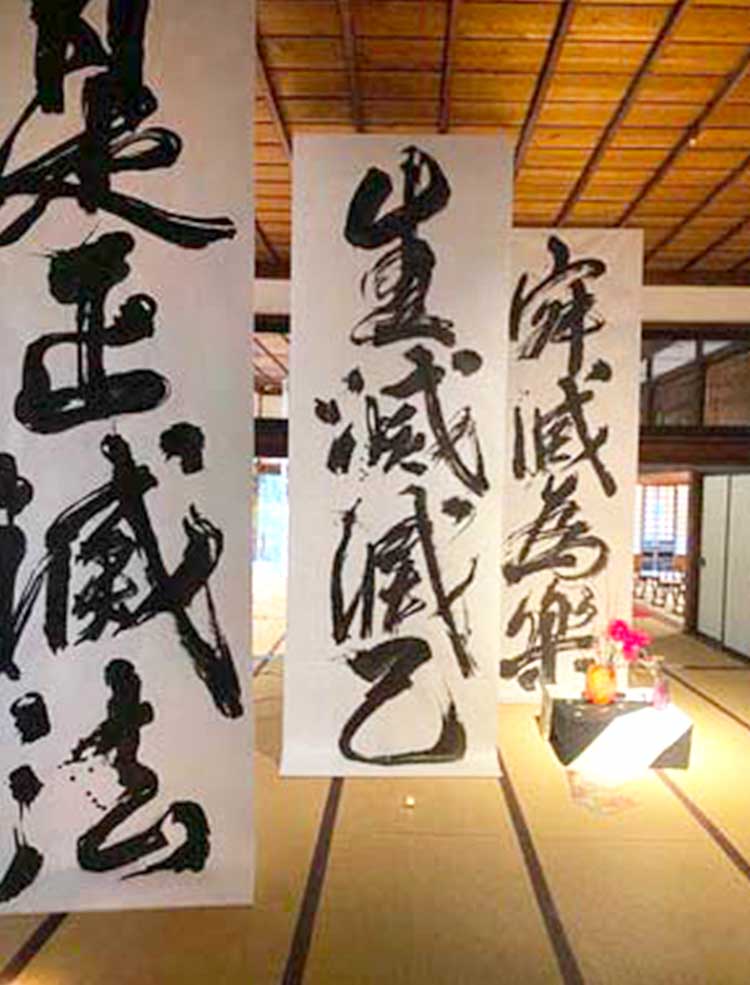 是生滅法
生滅滅已
寂滅為樂